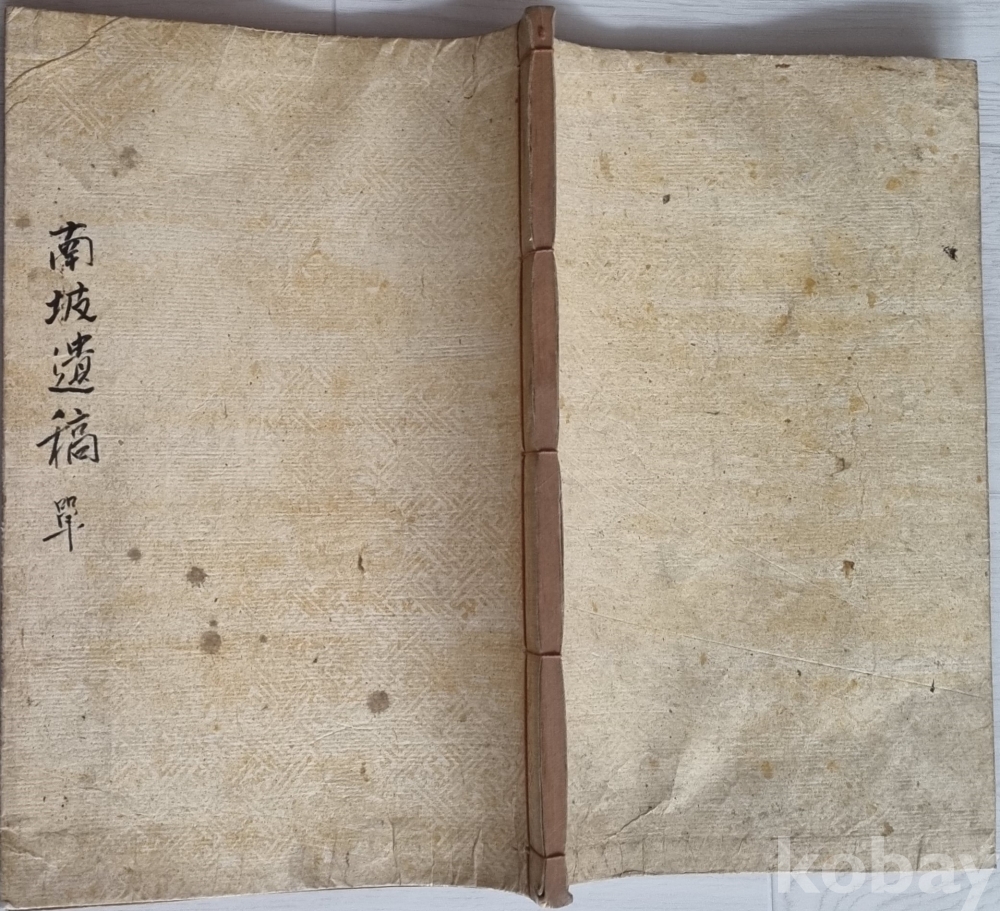 南坡遺稿 單
kobay